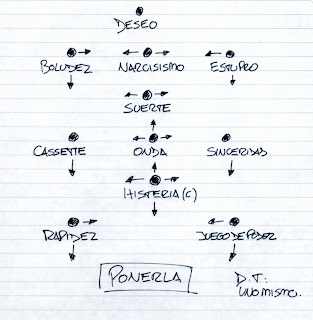 DESEO
BOLUDEZ NARCISISMO ESTUPRO
SUERTE
CASSETTE ONDA SINCERIDAD
HISTERIA (C)
RAPIDEZ JUEGO DE PODER
PONERLA
D.T:
UNO MISMO.